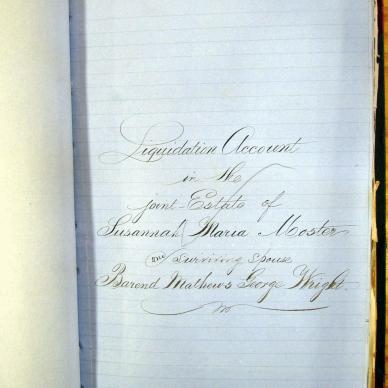 Liquidation Account
in the
joint-Estate of
Susannah Maria Moster
and surviving spouse
Barend Mathews George Wright